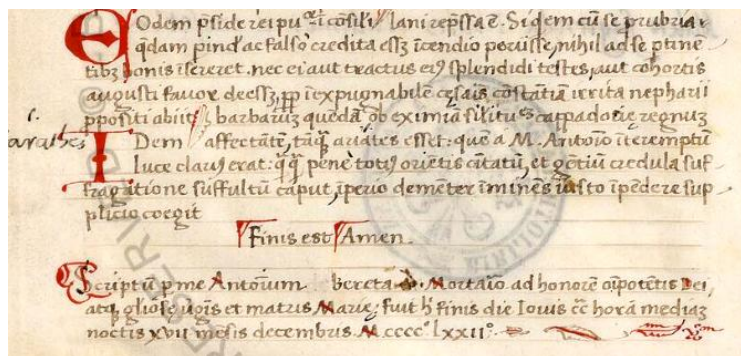 EOdem p̄side rei pu ꝗͥ cōsilij lani rep̄ssa ē. Si qͥdem cū se ꝓ rubria
qͥdam pind ac falso credita ess; īcendio periisse, nihil ad se ptinē
tib; bonis īsereret. nec ei aut tractus eiꝰ splendidi testes, aut cohortis
augusti fauor deess;, īexpugnabilē cęsaris cōstātiā irrita nepharii
ppositi abiit. barbarus quedā ob eximiā silitu cappadocię regnuȝ
arathes
IDem affectātē, tāꝗ ariates esset: quē a M. Antoīo īteremptū
luce clariꝰ erat: ꝗꝗ pene totiꝰ orietis ciuitatū, et gētiū credula suf
fragatione suffultū caput, īperio demēter īminēs iusto īpēdere sup
plicio coegit
Finis est Amen.
Scriptū p me Antoīum bercta de Mortaio ad honorē oīpotētis Dei,
atq gliose ꝟgīs et matris Marie, fuit h̄ finis die Iouis cc horā mediaȝ
noctis xvii mēsis decembris M cccc° lxxii°.